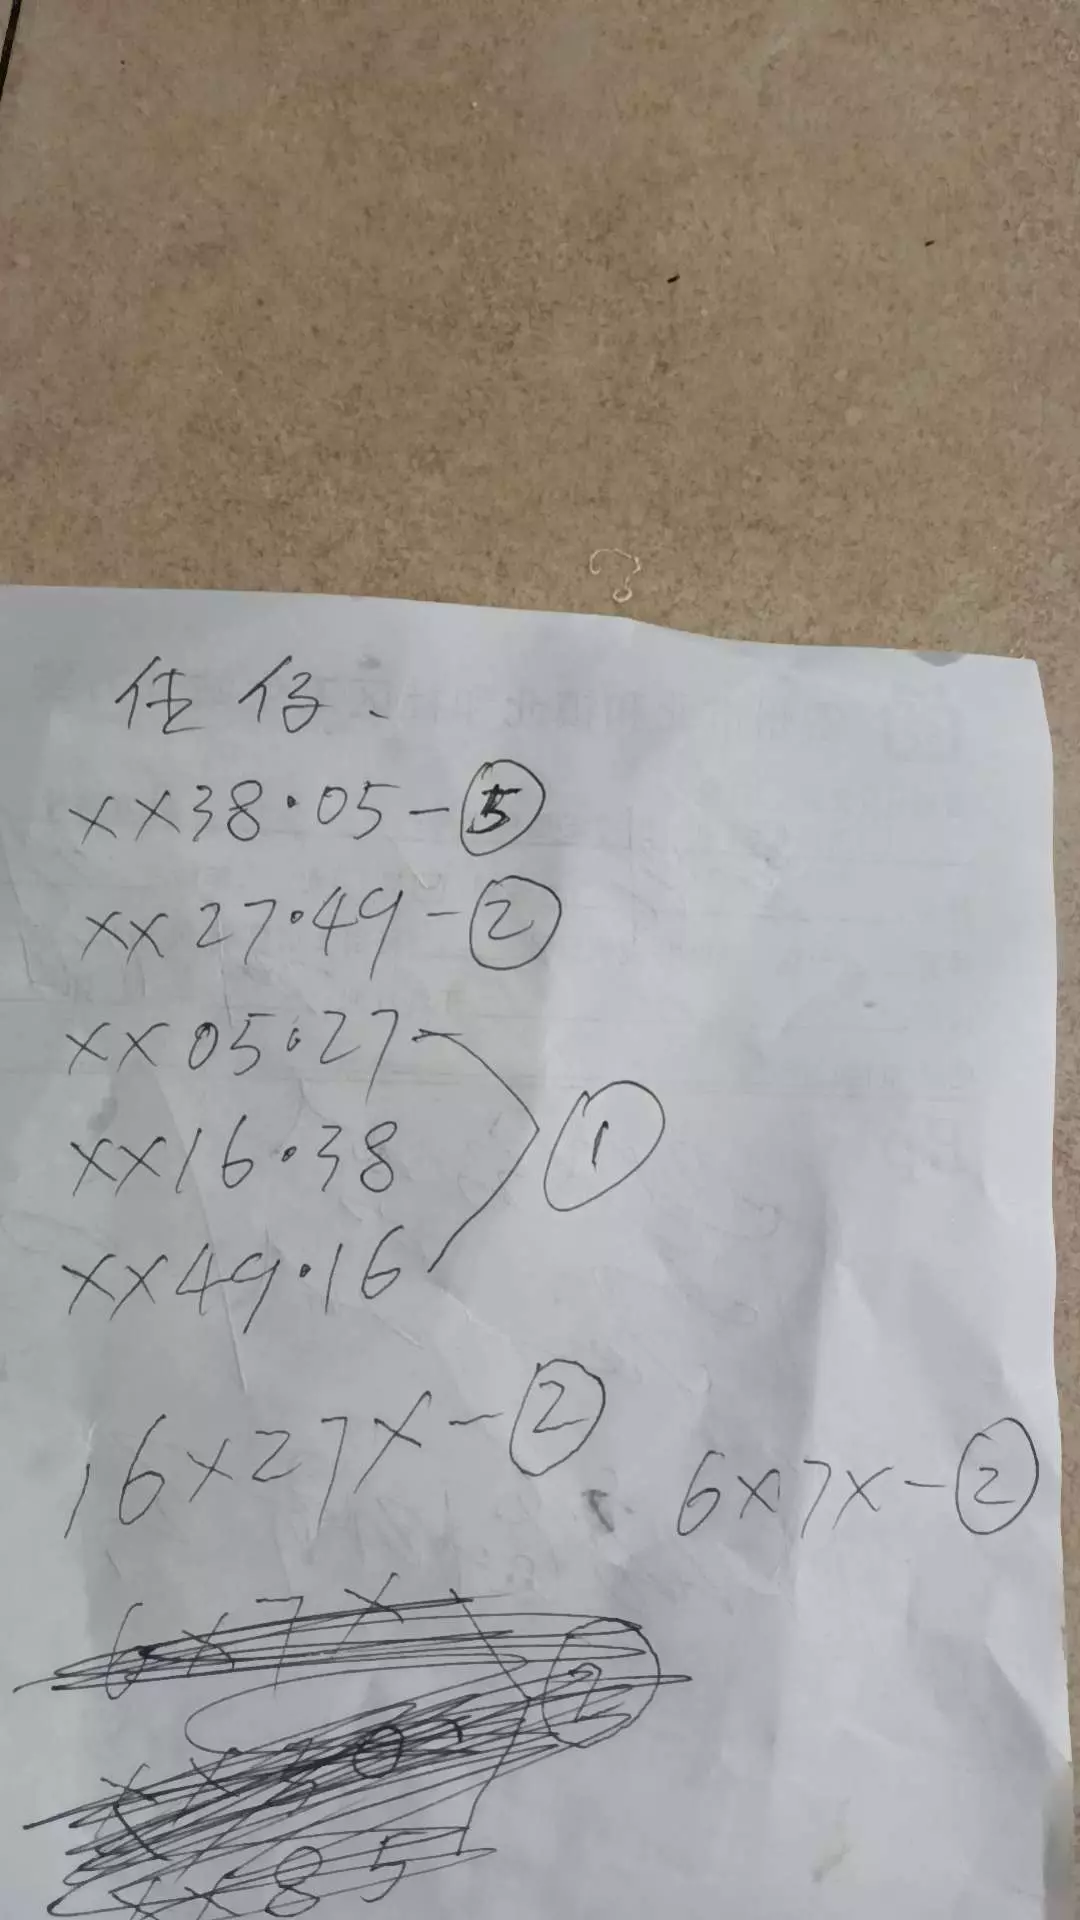 佳仔、
xx38·05-⑤
xx27·49-②
xx05·27
xx16·38
xx49·16
①
16x27x-②
6x7x-②
6x7x
②
xx85